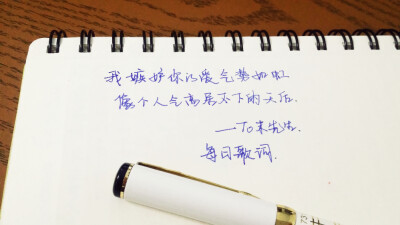 我嫉妒你的爱气势如虹
像个人气高居不下的天后.
——To 朱先生.
每日歌词.